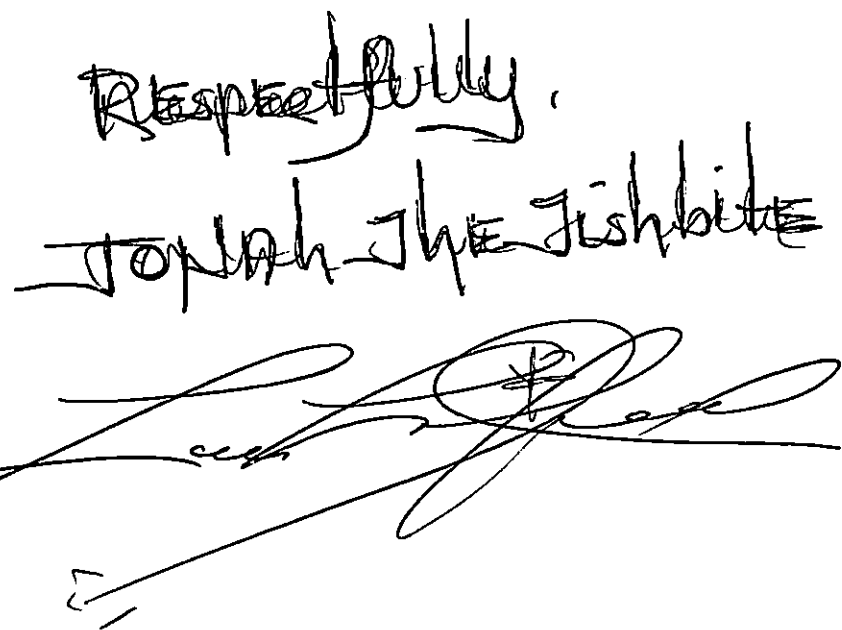 Respectfully.
Jonah The Fishbite